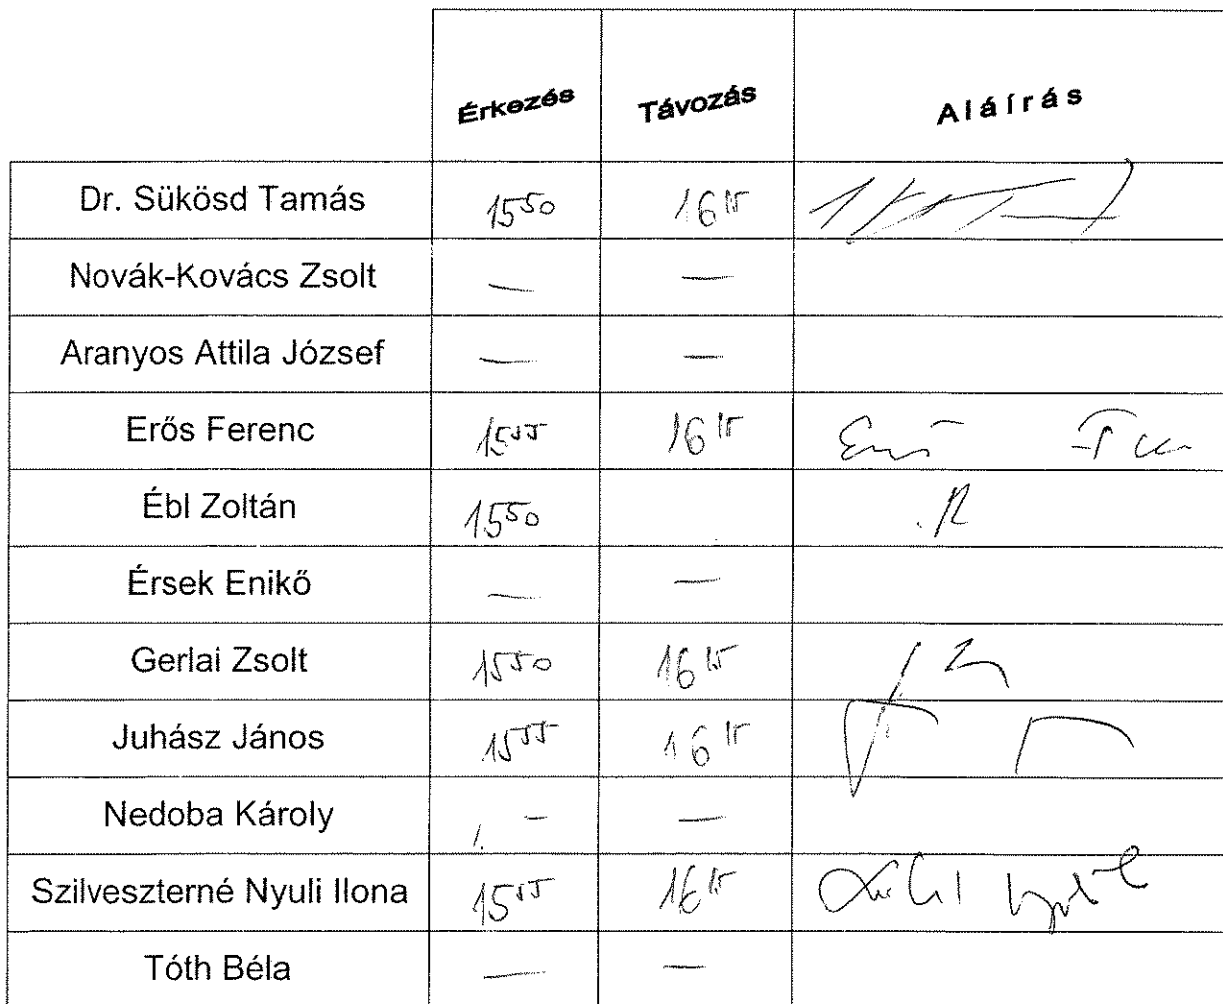 Érkezés Távozás Aláírás
Dr. Sükösd Tamás 15⁵⁰ 16¹⁵
Novák-Kovács Zsolt — —
Aranyos Attila József — —
Erős Ferenc 15⁵⁵ 16¹⁵
Ébl Zoltán 15⁵⁰
Érsek Enikő — —
Gerlai Zsolt 15⁵⁰ 16¹⁵
Juhász János 15⁵⁵ 16¹⁵
Nedoba Károly - —
Szilveszterné Nyuli Ilona 15⁵⁵ 16¹⁵
Tóth Béla — —